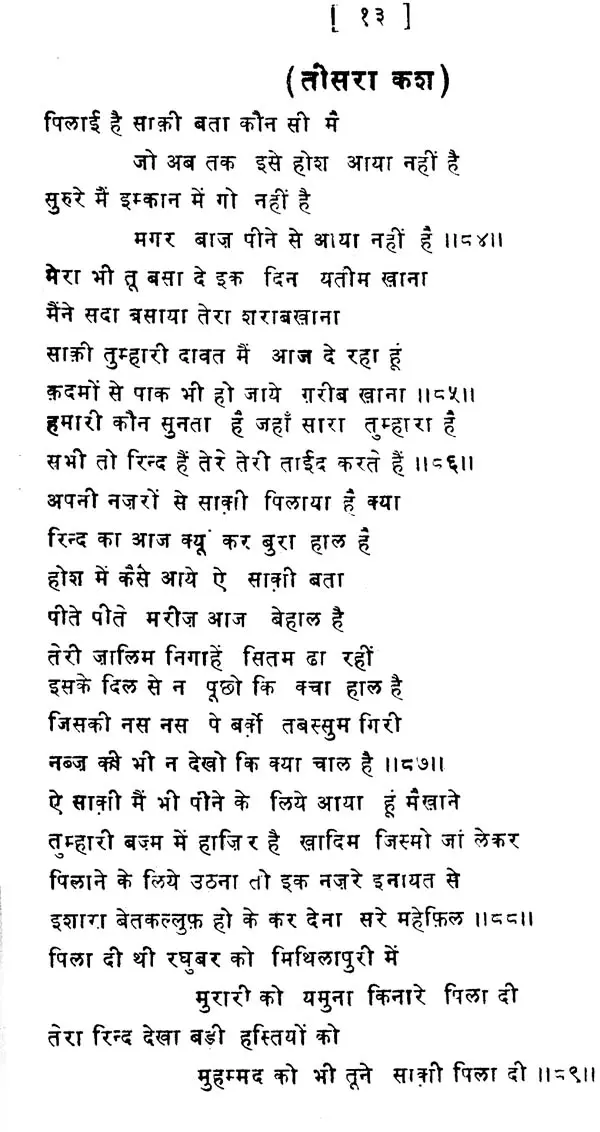 [ १३ ]
(तीसरा कश)
पिलाई है साक़ी बता कौन सी मै
जो अब तक इसे होश आया नहीं है
सुरुरे मैं इम्कान में गो नहीं है
मगर बाज़ पीने से आया नहीं है ॥८४॥
मेरा भी तू बसा दे इक दिन यतीम खाना
मैंने सदा बसाया तेरा शराबखाना
साक़ी तुम्हारी दावत मैं आज दे रहा हूं
क़दमों से पाक भी हो जाये ग़रीब खाना ॥८५॥
हमारी कौन सुनता है जहाँ सारा तुम्हारा है
सभी तो रिन्द हैं तेरे तेरी ताईद करते हैं ॥८६॥
अपनी नज़रों से साक़ी पिलाया है क्या
रिन्द का आज क्यूं कर बुरा हाल है
होश में कैसे आये ऐ साक़ी बता
पीते पीते मरीज़ आज बेहाल है
तेरी ज़ालिम निगाहें सितम ढा रहीं
इसके दिल से न पूछो कि क्चा हाल है
जिसकी नस नस पे बर्क़े तबस्सुम गिरी
नब्ज़ की भी न देखो कि क्या चाल है ॥८७॥
ऐ साक़ी मैं भी पीने के लिये आया हूं मैखाने
तुम्हारी बज़्म में हाज़िर है खादिम जिस्मो जां लेकर
पिलाने के लिये उठना तो इक नज़रे इनायत से
इशारा बेतकल्लुफ़ हो के कर देना सरे महेफ़िल ॥८८॥
पिला दी थी रघुबर को मिथिलापुरी में
मुरारी को यमुना किनारे पिला दी
तेरा रिन्द देखा बड़ी हस्तियों को
मुहम्मद को भी तूने साक़ी पिला दी ॥८९॥